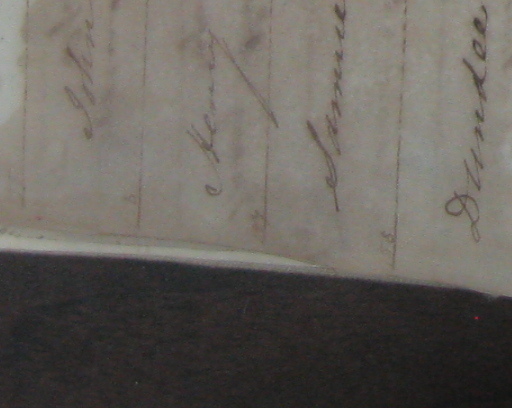 John
Henry
Samue
Dundee